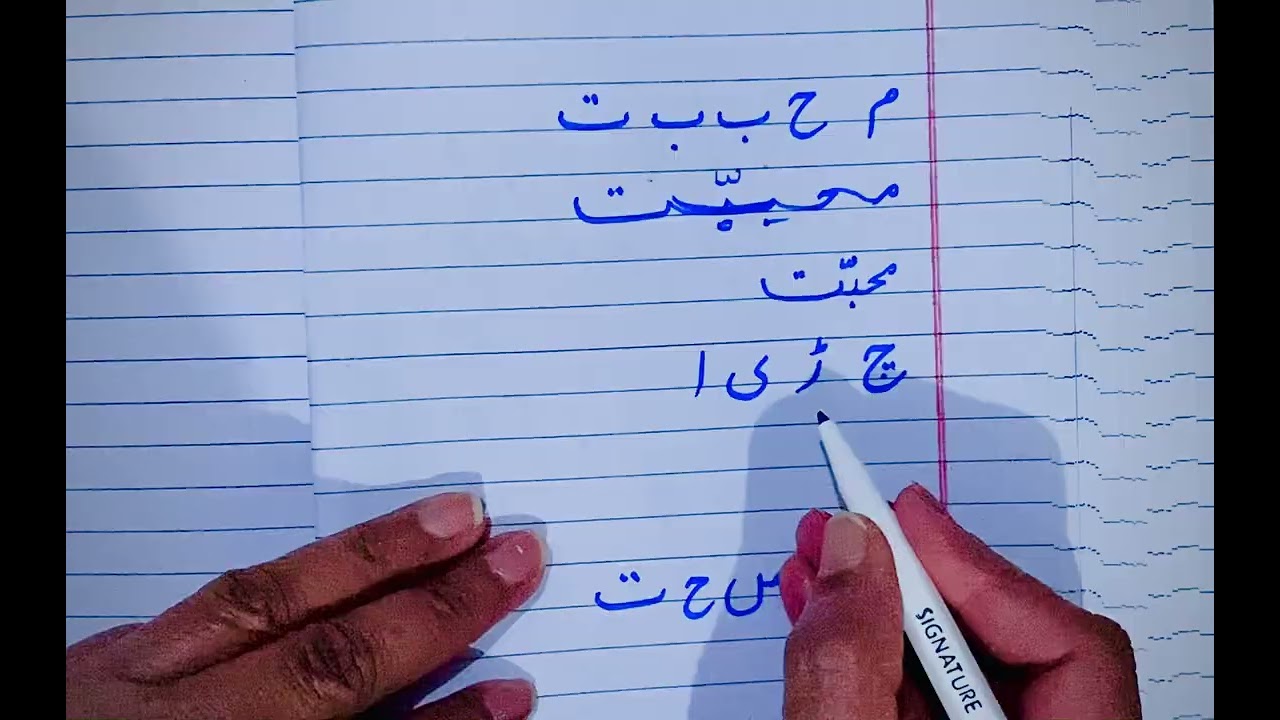 م ح ب ب ت
محببّت
محبّت
چ ڑ ی ا
ح ت
SIGNATURE